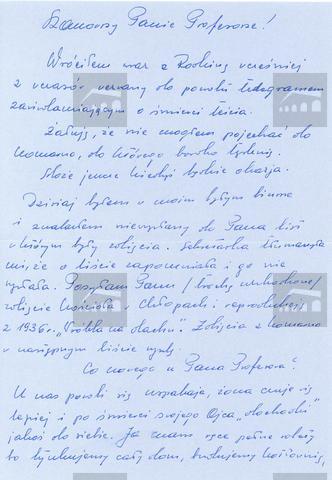 Szanowny Panie Profesorze!
Wróciłem wraz z Rodziną wcześniej
z wczasów wezwany do powrotu telegramem
zawiadamiającym o śmierci teścia.
Żałuję, że nie mogłem pojechać do
Komano, do którego bardzo tęsknię.
Może jeszcze kiedyś będzie okazja.
Dzisiaj byłem w moim byłym biurze
i znalazłem niewysłany do Pana list
w którym były zdjęcia. Sekretarka tłumaczyła
mi, że o liście zapomniała i go nie
wysłała. Posyłam Panu /trochę uszkodzone/
zdjęcie kościoła w Chłopach i reprodukcję
z 1936 r. na dachu". Zdjęcia z Komano
w następnym liście wyślę.
Co nowego u Pana Profesora?
U nas powoli się uspakaja, żona czuje się
lepiej i po śmierci swojego Ojca „dochodzi"
jakoś do siebie. Ja mam ręce pełne roboty
bo tynkujemy cały dom, budujemy